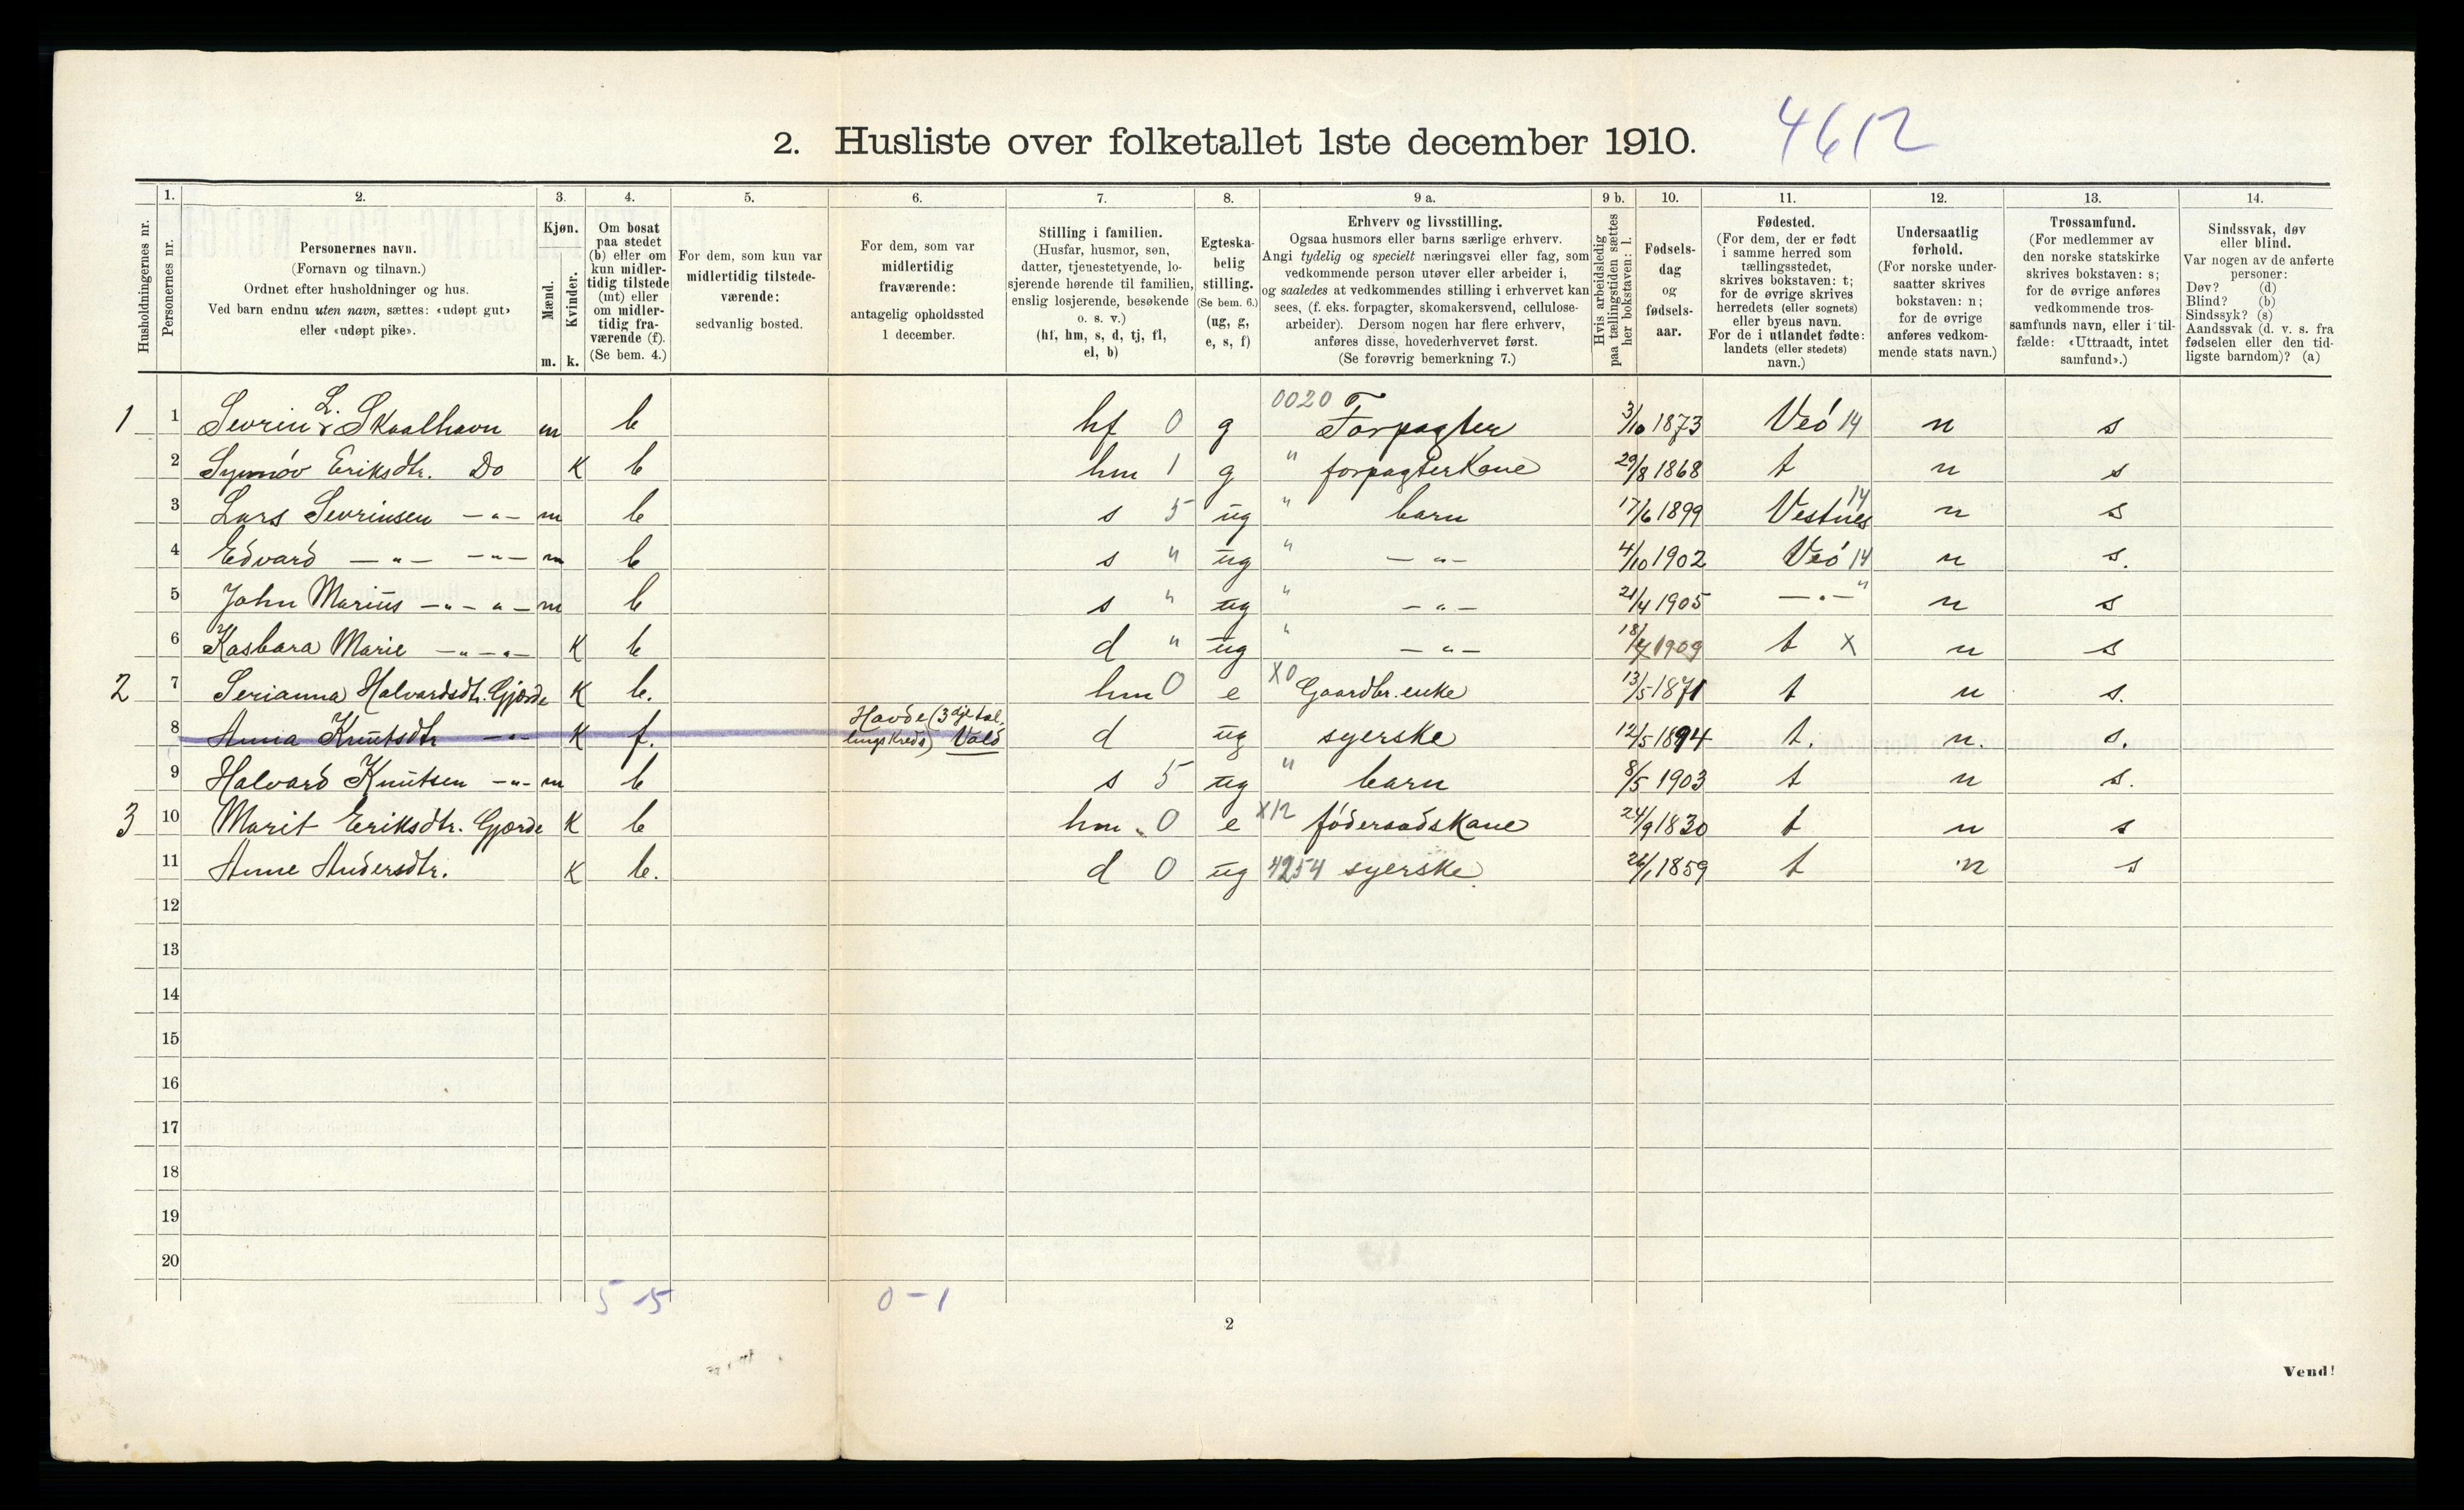 2. Husliste over folketallet 1ste december 1910. 4612
Husholdningernes nr.
1.
Personernes nr.
2.
Personernes navn.
(Fornavn og tilnavn.)
Ordnet efter husholdninger og hus.
Ved barn endnu uten navn, sættes: «udøpt gut»
eller «udøpt pike».
3.
Kjøn.
Mænd.
m.
Kvinder.
k.
4.
Om bosat
paa stedet
(b) eller om
kun midler-
tidig tilstede
(mt) eller
om midler-
tidig fra-
værende (f).
(Se bem. 4.)
5.
For dem, som kun var
midlertidig tilstede-
værende:
sedvanlig bosted.
6.
For dem, som var
midlertidig
fraværende:
antagelig opholdssted
1 december.
7.
Stilling i familien.
(Husfar, husmor, søn,
datter, tjenestetyende, lo-
sjerende hørende til familien,
enslig losjerende, besøkende
o. s. v.)
(hf, hm, s, d, tj, fl,
el, b)
8.
Egteska-
belig
stilling.
(Se bem. 6.)
(ug, g,
e, s, f)
9 a.
Erhverv og livsstilling.
Ogsaa husmors eller barns særlige erhverv.
Angi tydelig og specielt næringsvei eller fag, som
vedkommende person utøver eller arbeider i,
og saaledes at vedkommendes stilling i erhvervet kan
sees, (f. eks. forpagter, skomakersvend, cellulose-
arbeider). Dersom nogen har flere erhverv,
anføres disse, hovederhvervet først.
(Se forøvrig bemerkning 7.)
9 b.
Hvis arbeidsledig
paa tællingstiden sættes
her bokstaven: l.
10.
Fødsels-
dag
og
fødsels-
aar.
11.
Fødested.
(For dem, der er født
i samme herred som
tællingsstedet,
skrives bokstaven: t;
for de øvrige skrives
herredets (eller sognets)
eller byens navn.
For de i utlandet fødte:
landets (eller stedets)
navn.)
12.
Undersaatlig
forhold.
(For norske under-
saatter skrives
bokstaven: n;
for de øvrige
anføres vedkom-
mende stats navn.)
13.
Trossamfund.
(For medlemmer av
den norske statskirke
skrives bokstaven: s;
for de øvrige anføres
vedkommende tros-
samfunds navn, eller i til-
fælde: «Uttraadt, intet
samfund».)
14.
Sindssvak, døv
eller blind.
Var nogen av de anførte
personer:
Døv? (d)
Blind? (b)
Sindssyk? (s)
Aandssvak (d. v. s. fra
fødselen eller den tid-
ligste barndom)? (a)
1 1 Sevrin L. Skaalhavn m b hf 0 g 0020 Forpagter 3/10 1873 Veö 14 n s
2 Synnöv Eriksdtr. Do K b hm 1 g " forpagterkone 29/8 1868 t n s
3 Lars Sevrinsen -"- m b s 5 ug " barn 17/6 1899 Vestnes 14 n s
4 Edvard -"- -"- m b s " ug " -"- 4/10 1902 Veö 14 n s.
5 John Marius -"- "- m b s " ug " -"- 21/4 1905 -"- " n s
6 Kasbara Marie -"-"- K b d " ug " -"- 18/4 1909 t X n s
2 7 Serianna Halvardsdtr. Gjørde K b. hm 0 e X0 Gaardbr. enke 13/5 1871 t n s.
8 Anna Knutsdtr -"- K f. Havde (3dje tæl-
lings Kreds) Valö d ug syerske 12/5 1894 t. n. s.
9 Halvard Knutsen -"- m b s 5 ug " barn 8/5 1903 t n s.
3 10 Marit Eriksdtr. Gjørde K b hm. 0 e X12 föderaadskone 24/9 1830 t n s
11 Anne Andersdtr. K b. d 0 ug 4254 syerske 26/1 1859 t n s
12
13
14
15
16
17
18
19
20
5-5 0-1
2
Vend!